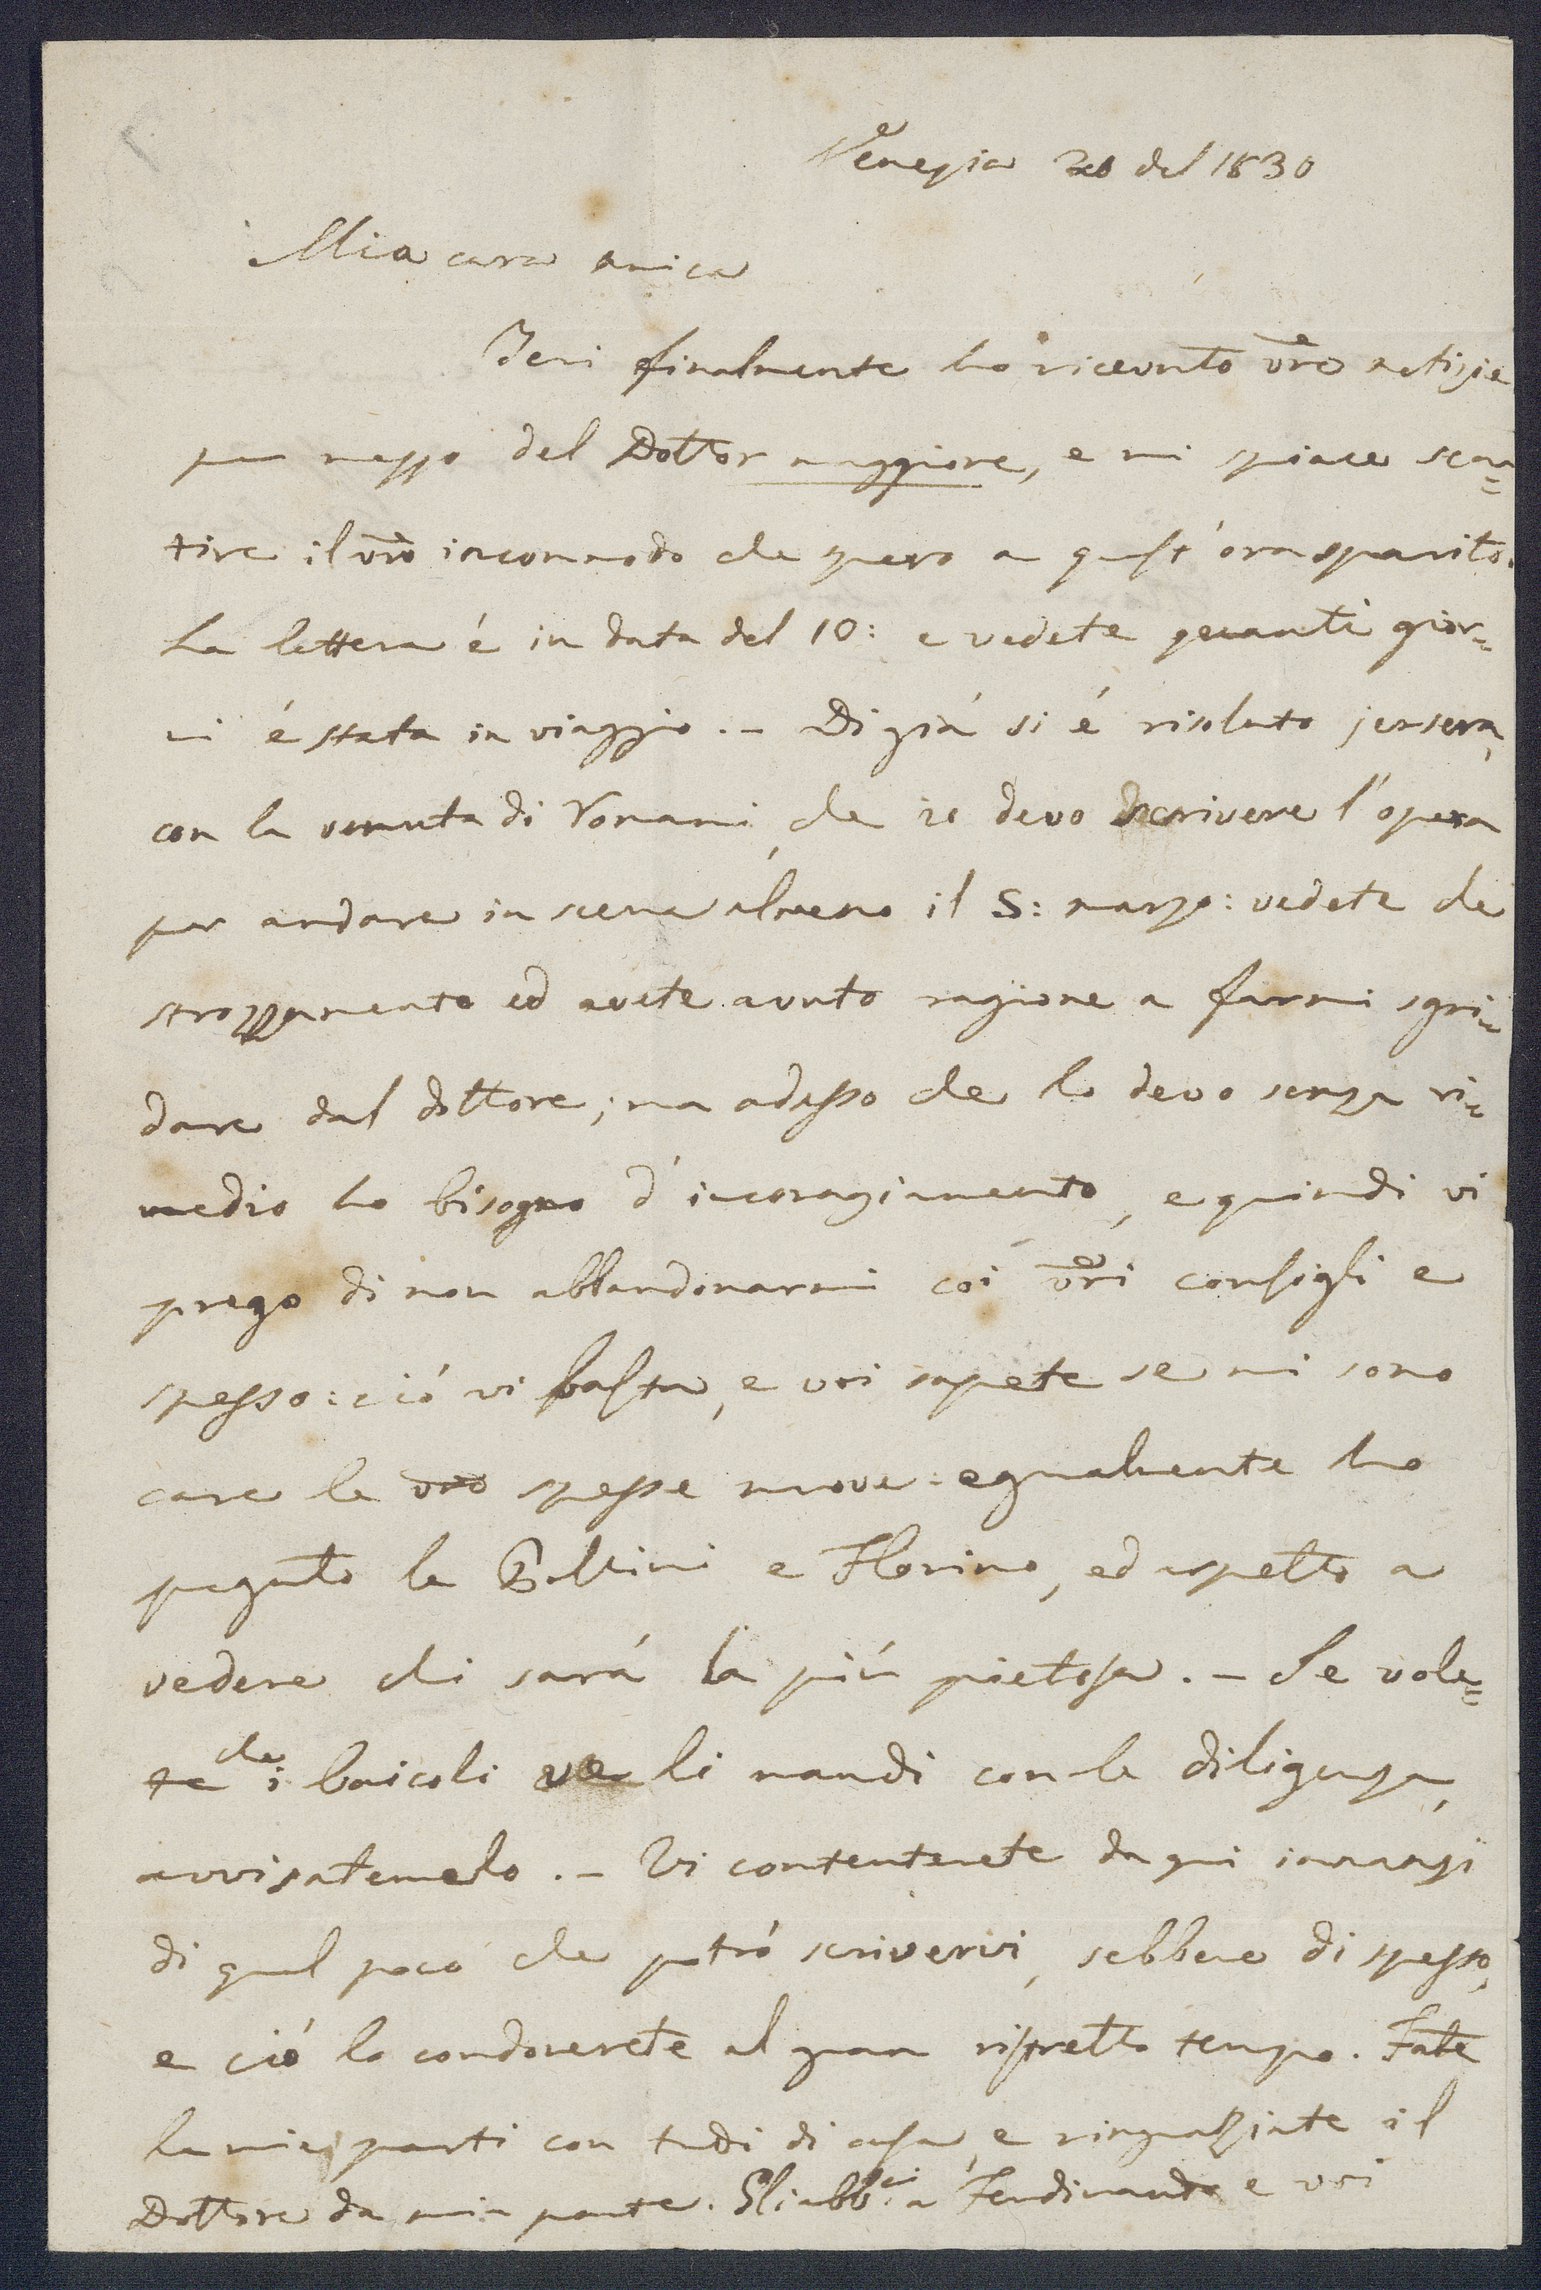 Venezia 20 del 1830
Mia cara amica
Jeri finalmente ho ricevuto vre notizie
per mezzo del Dottor maggiore, e mi spiace sen=
tire il vro incommodo che spero a quest'ora sparito.
La lettera é in data del 10: e vedete quanti gior=
ni é stata in viaggio. – Di giá si é risoluto jersera,
con la venuta di Romani, che io devo scrivere l'opera
per andare in scena almeno il 5: marzo: vedete che
strozzamento ed avete avuto ragione a farmi sgri=
dare dal dottore; ma adesso che lo devo senza ri=
medio ho bisogno d'incoragiamento, e quindi vi
prego di non abbandonarmi coi vri consigli e
spesso: ció vi basta, e voi sapete se mi sono
care le vre spesse nuove: egualmente ho
pregato la Boltini e Florino, ed aspetto a
vedere chi sará la piú pietosa. – Se vole=
te che i baicoli ve li mandi con la diligenza,
avvisatemelo. – Vi contenterete da qui innanzi
di quel poco che potró scrivervi, sebbene di spesso,
e ció lo condonerete al gran ristretto tempo. Fate
le mie parti con tutti di casa, e ringraziate il
Dottore da mia parte. Gli abb:ci a Ferdinando e voi